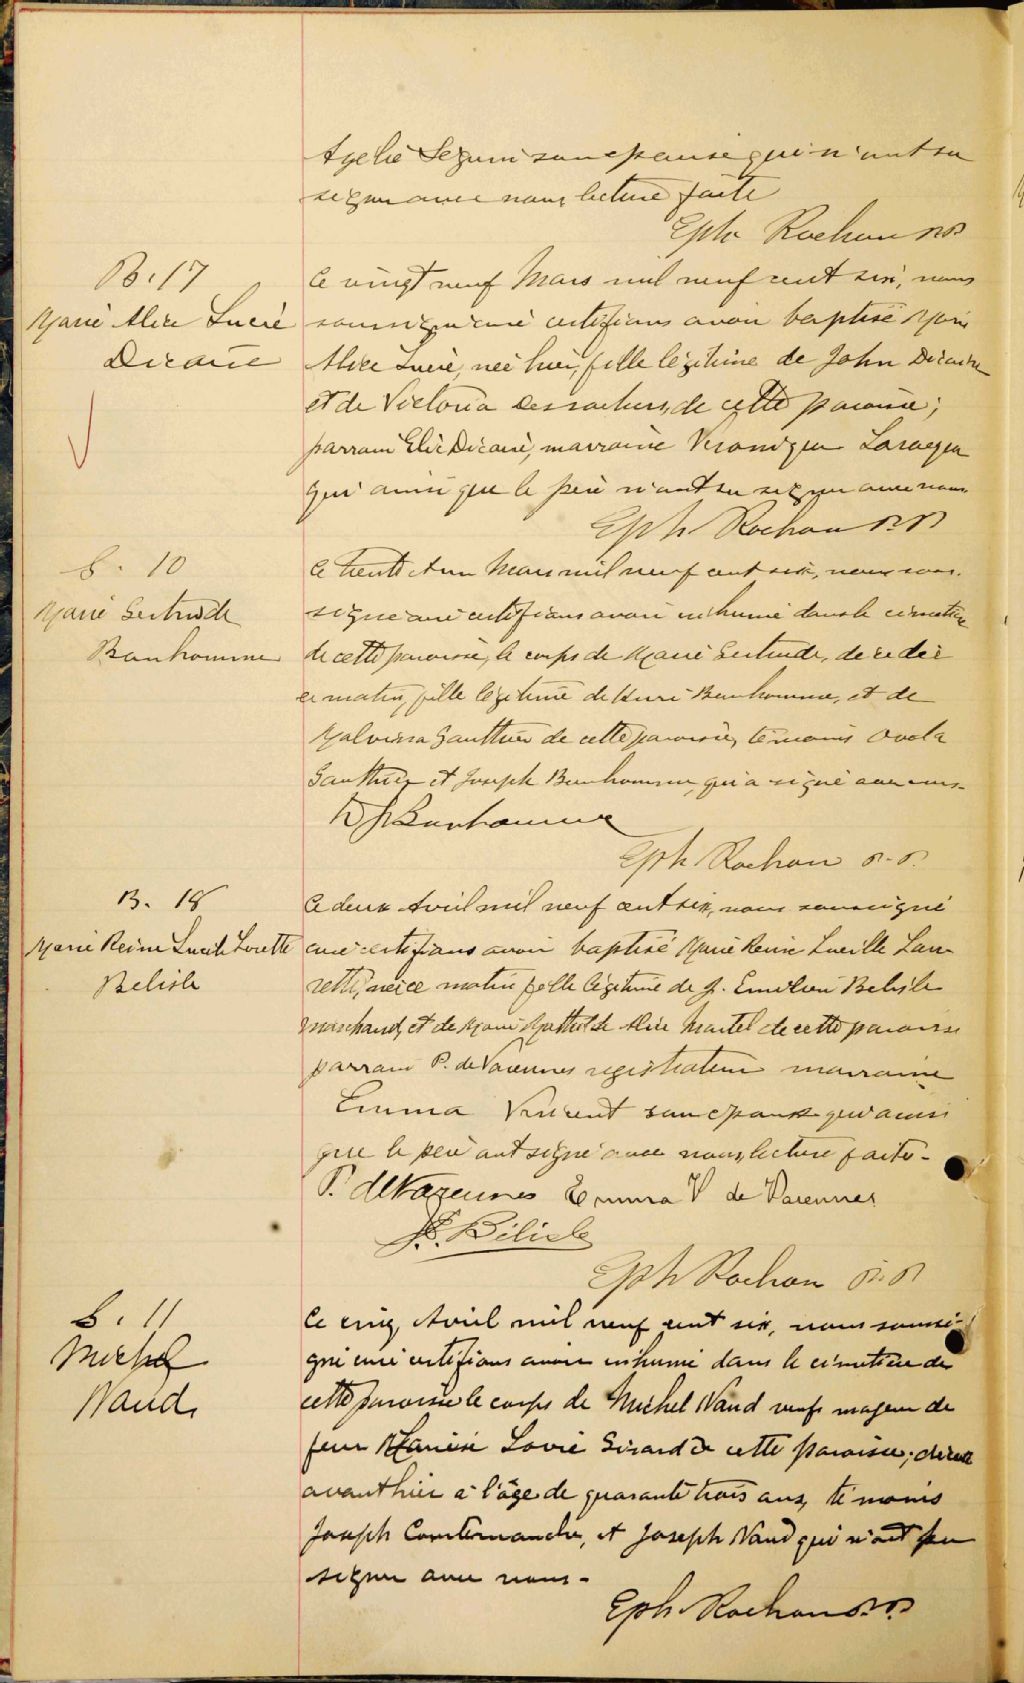 Seguin son epouse qui n'ont su
signer avec nous, lecture faite
Eph Rochon
B. 17
Marie Alice Lucie
Dicaire
Ce vingt neuf Mars mil neuf cent six, nous
soussigné curé certifions avoir baptisé Marie
Alice Lucie, née hier, fille légitime de John Dicaire
et de Victoria Desrochers, de cette paroisse;
parrain Elie Dicaire, marraine Veronique Larocque
qui ainsi que le père n'ont su signer avec nous
Eph Rochon
S. 10
Marie Gertrude
Bonhomme
Ce trente et un Mars mil neuf cent six, nous sous-
signé curé certifions avoir inhumé dans le cimetière
de cette paroisse, le corps de Marie Gertrude, décédée
ce matin, fille légitime de Henri Bonhomme, et de
Malvina Gauthier de cette paroisse, témoins
Gauthier et Joseph Bonhomme, qui a signé avec nous-
Bonhomme
Eph Rochon
B. 18
Marie Reine Lucile Lorette
Belisle
Ce deux Avril mil neuf cent six, nous soussigné
curé certifions avoir baptisé Marie Reine Lucille Lau-
rette, née ce matin fille légitime de J. Emilien Belisle
marchand, et de Marie Mathilde Alice Martel de cette paroisse
parrain P. de Varennes registrateur marraine
Emma Vincent son epouse qui ainsi
que le père ont signé avec nous, lecture faite-
P. de Varennes Emma V de Varennes
J.E. Bélisle
Eph Rochon
S. 11
Michel
Naud
Ce cinq Avril mil neuf cent six, nous soussi-
gné curé certifions avoir inhumé dans le cimetière de
cette paroisse le corps de Michel Naud veuf majeur de
feue Girard de cette paroisse; décédé
avant hier à l'âge de quarante trois ans, témoins
Joseph et Joseph Naud qui n'ont pu
signer avec nous-
Eph Rochon